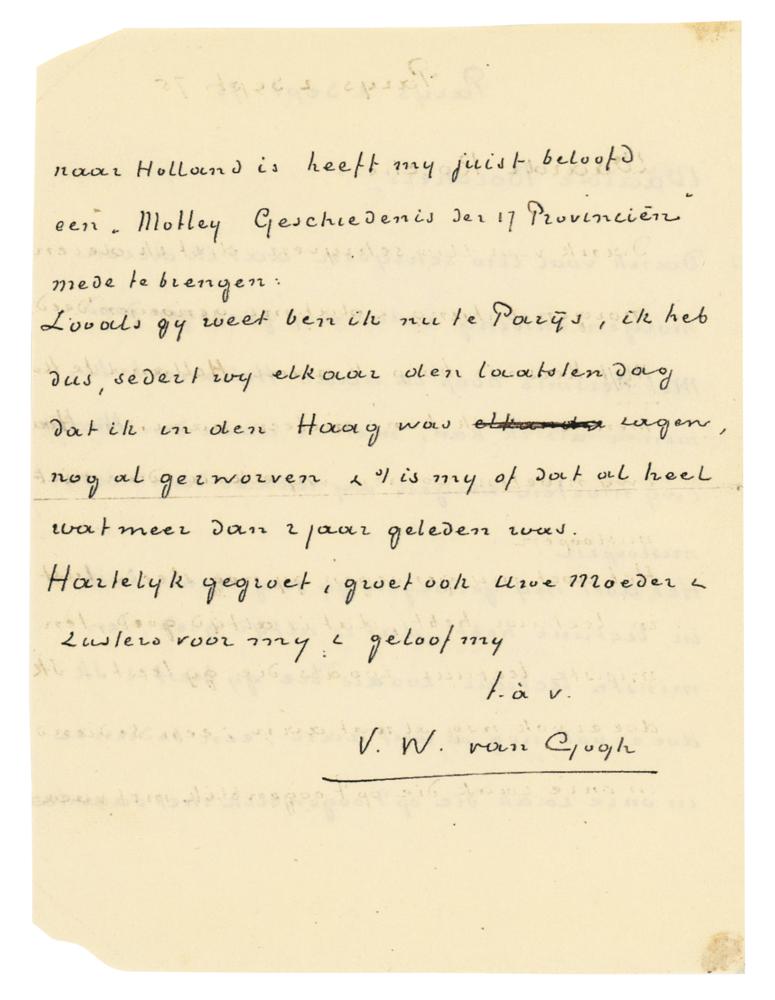 naar Holland is heeft my juist beloofd
een „Motley Geschiedenis der 17 Provinciën"
mede te brengen:
Zooals gy weet ben ik nu te Parijs, ik heb
dus, sedert wy elkaar den laatsten dag
dat ik in den Haag was zagen,
nog al gezworven & 't is my of dat al heel
wat meer dan 2 jaar geleden was.
Hartelyk gegroet, groet ook Uwe Moeder &
Zusters voor my & geloof my
t. à v.
V. W. van Gogh